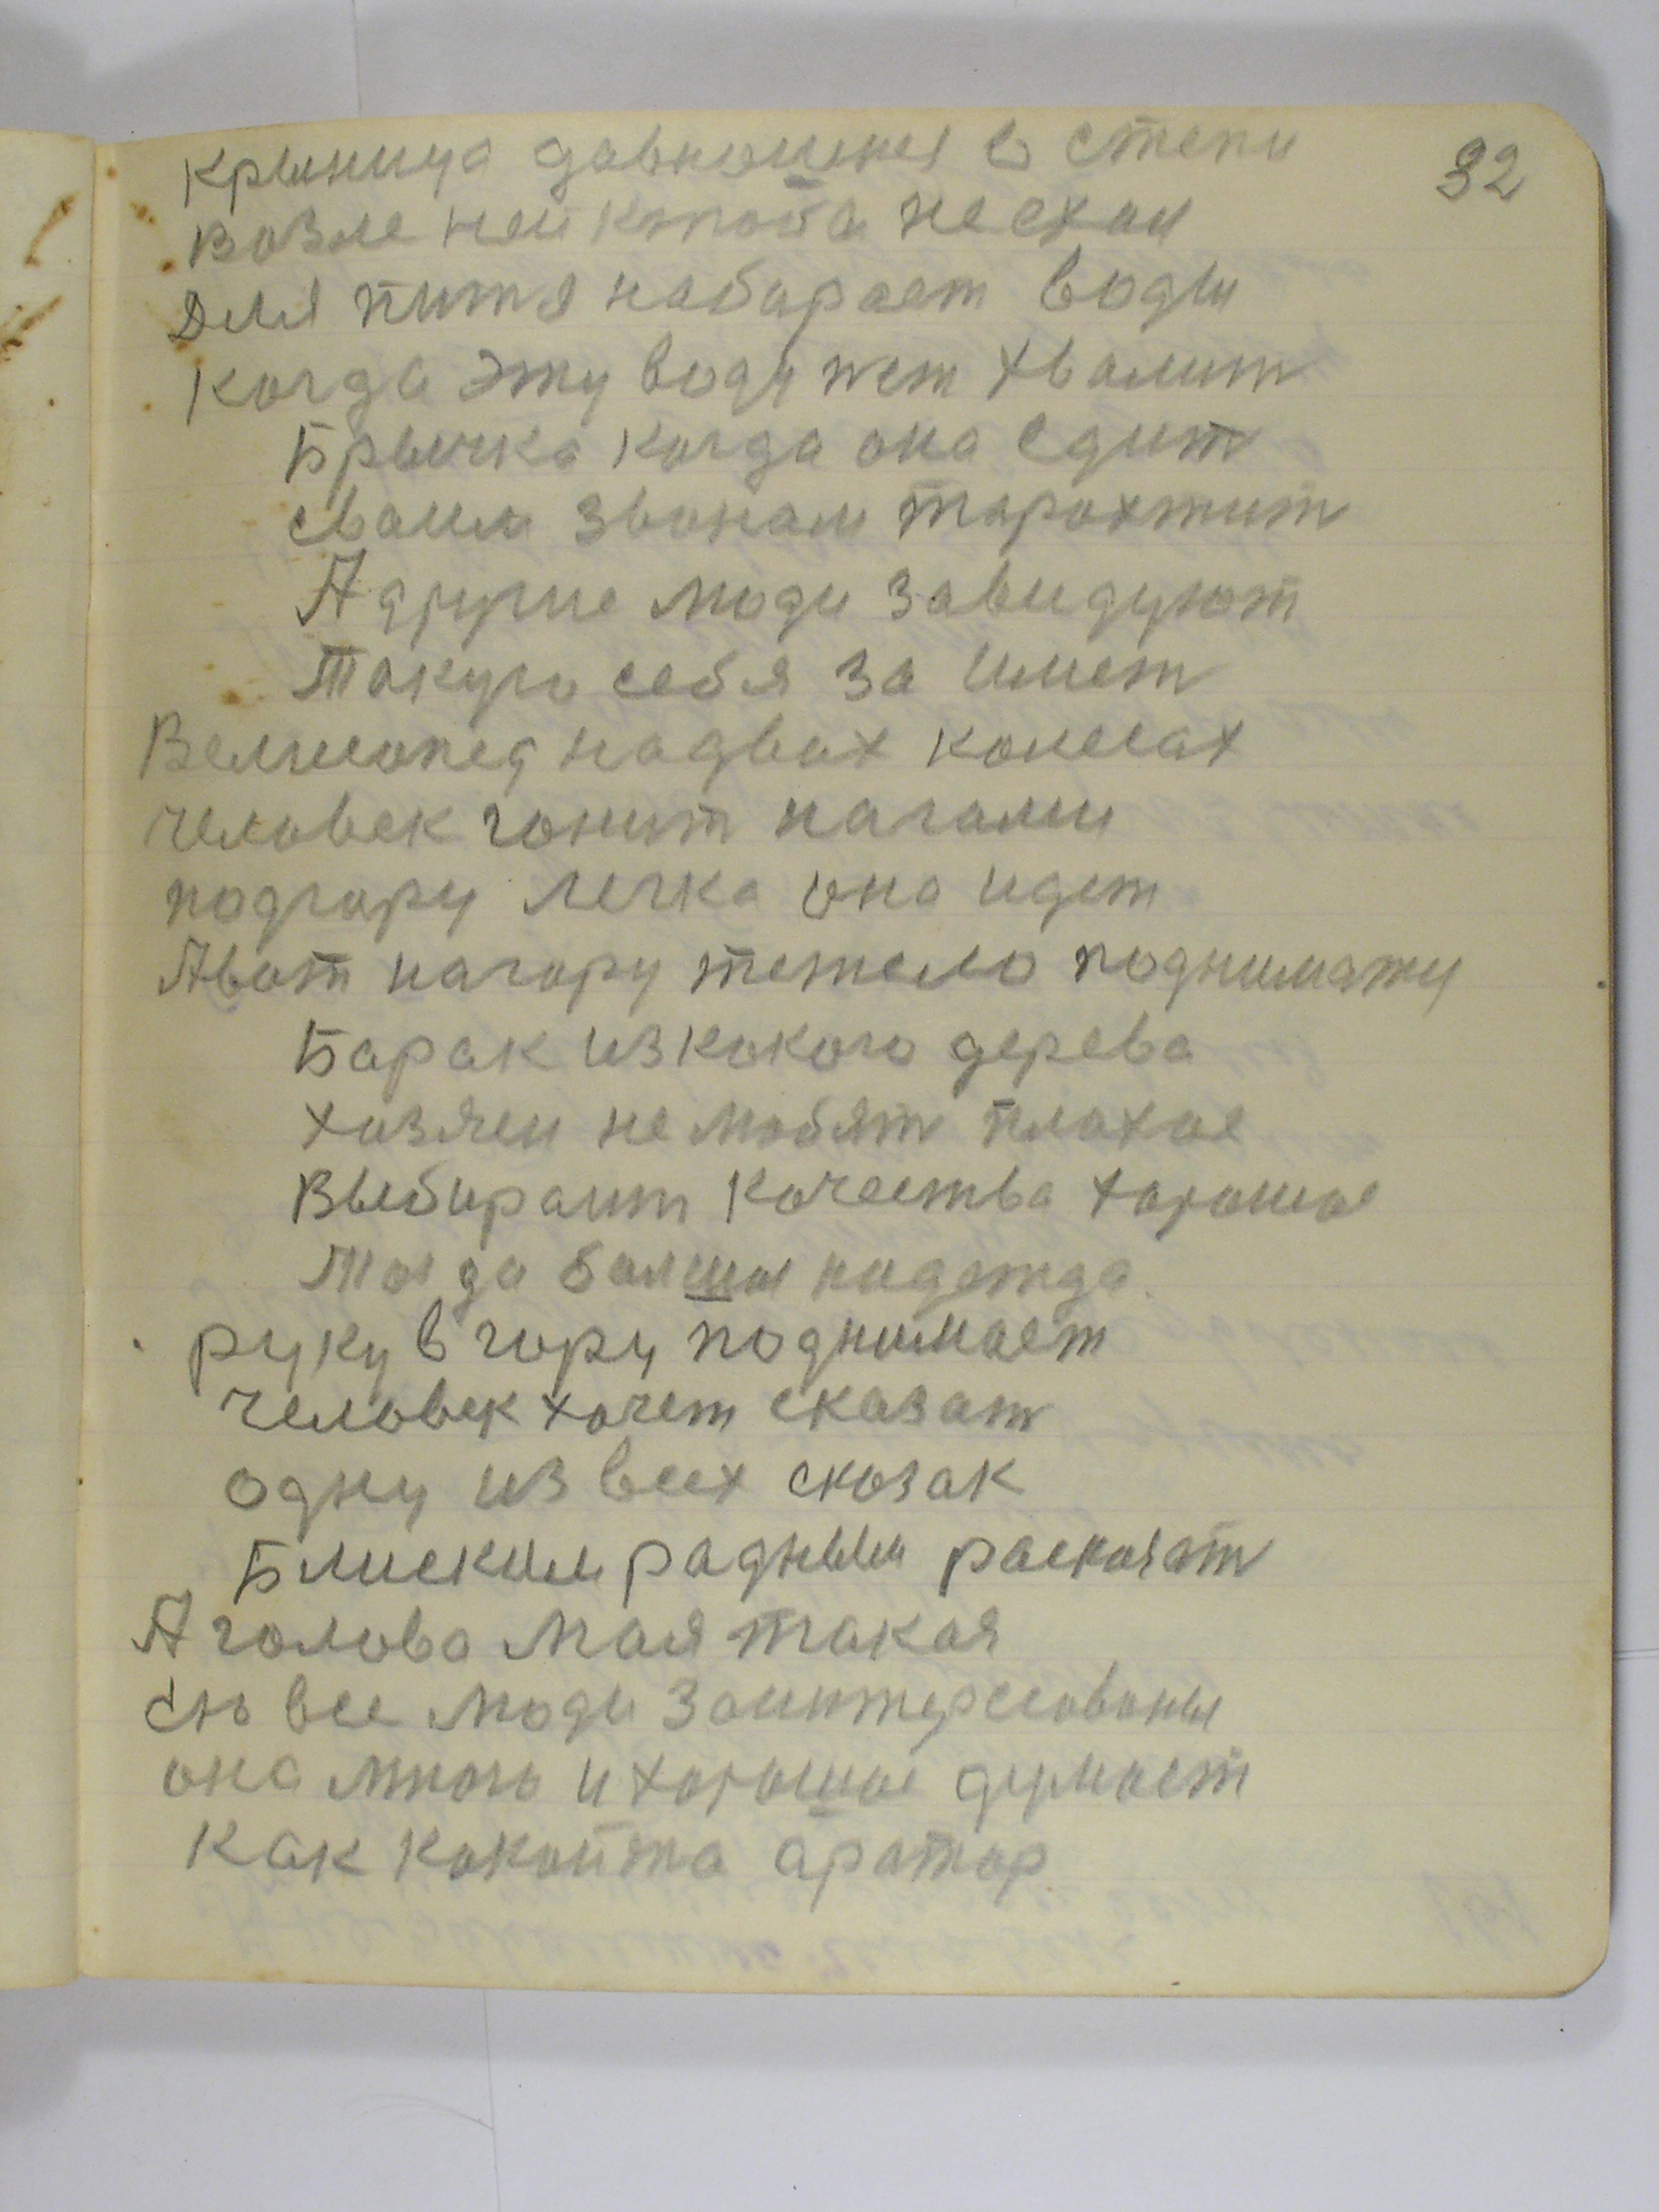 32
Крыница давношняя в степи
Возле ней ктоба не ехал
Для питя набирает воды
Когда эту воду пет хвалит
Брычка когда она едит
сваим звонам тарахтит
А другие люди завидуют
Такую себя за имет
Велисопед надвах колесах
человек гонит нагами
подгару легка она идет
Авот нагару тежело подниматц
Барак изкокого дерева
хозяеи не любят плахое
Выбираит качества харошое
Тогда балшая надежда.
руку в гору поднимает
человек хочет сказат
одну из всех сказак
Блиским радным
А голова мая такая
ею все люди заинтересованы
она много и харошое думает
как какойта аратор